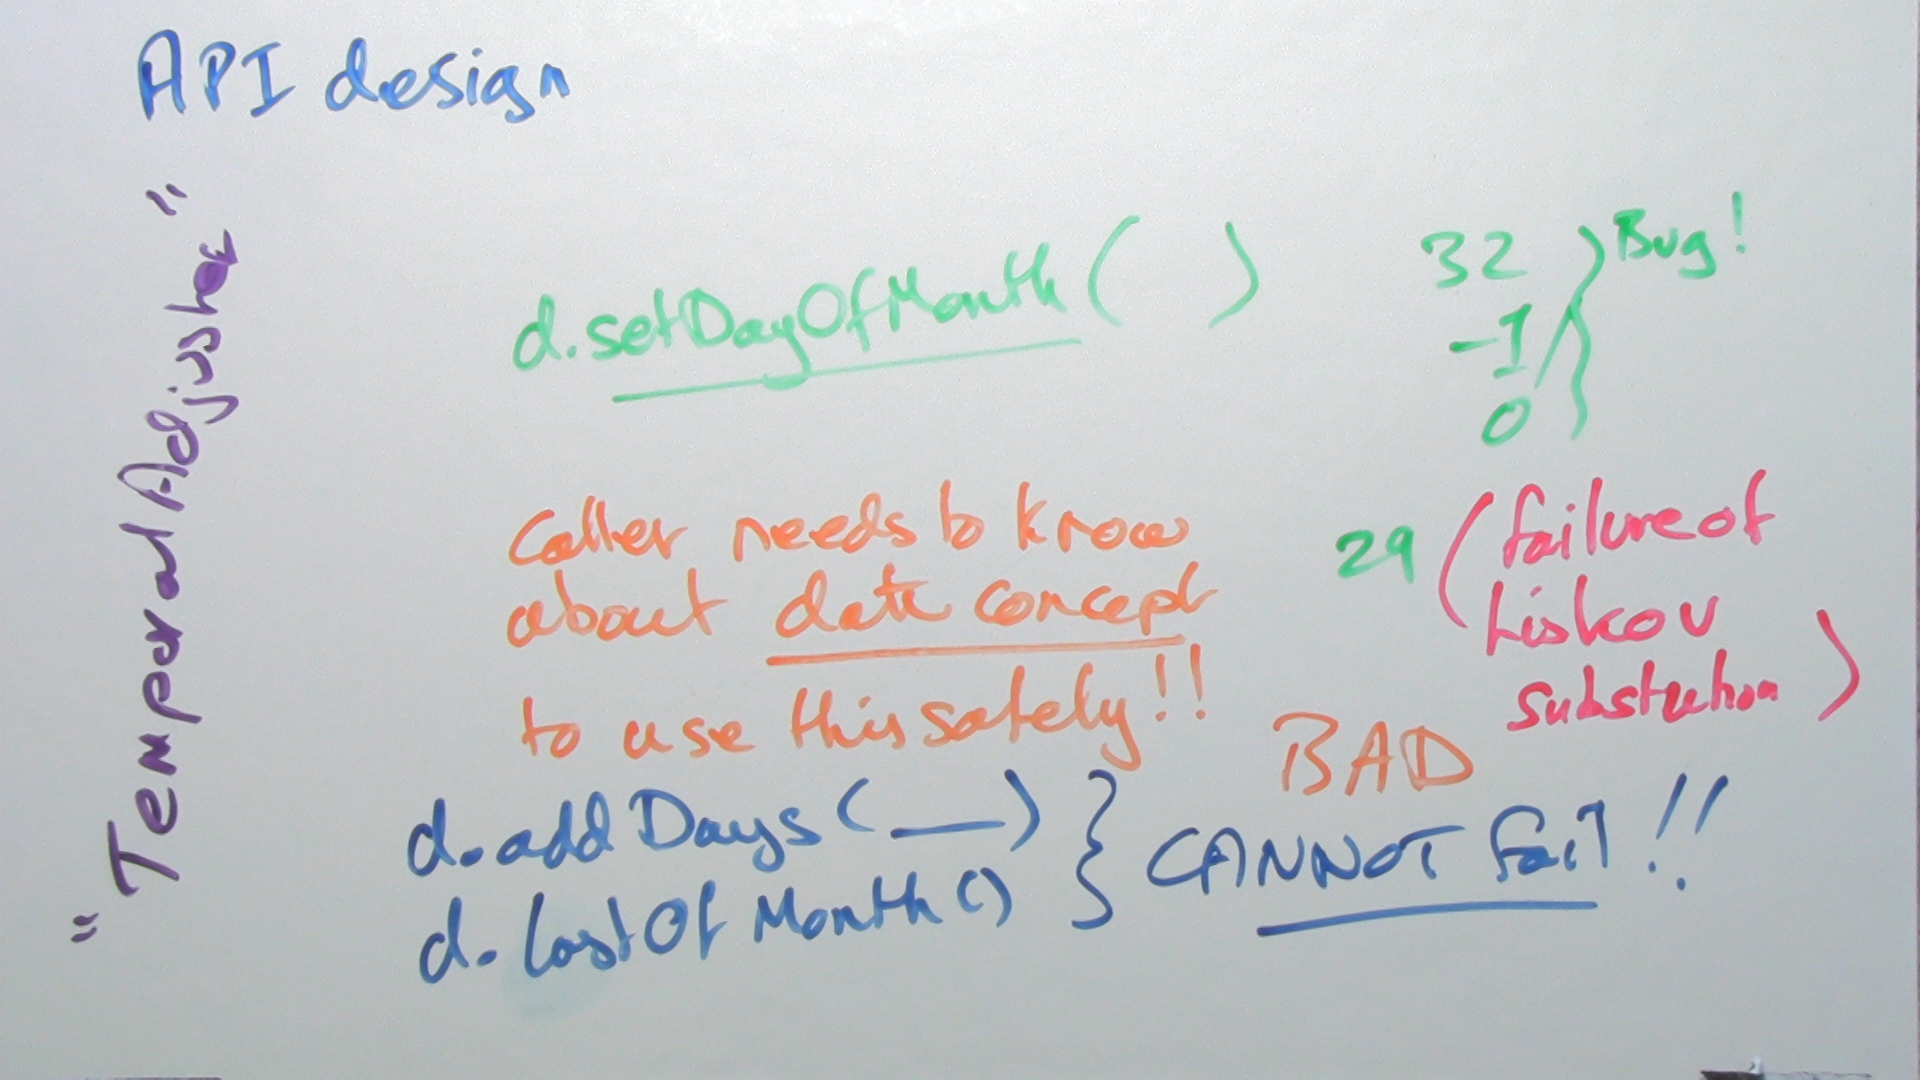 API design
"TemporalAdjuster"
d.setDayOfMonth( )
32
-1
0
Bug!
Caller needs to know
about date concept
to use this safely!!
29
(failure of
Liskov
substitution)
BAD
d.addDays(__)
d.lastOfMonth()
} CANNOT fail!!